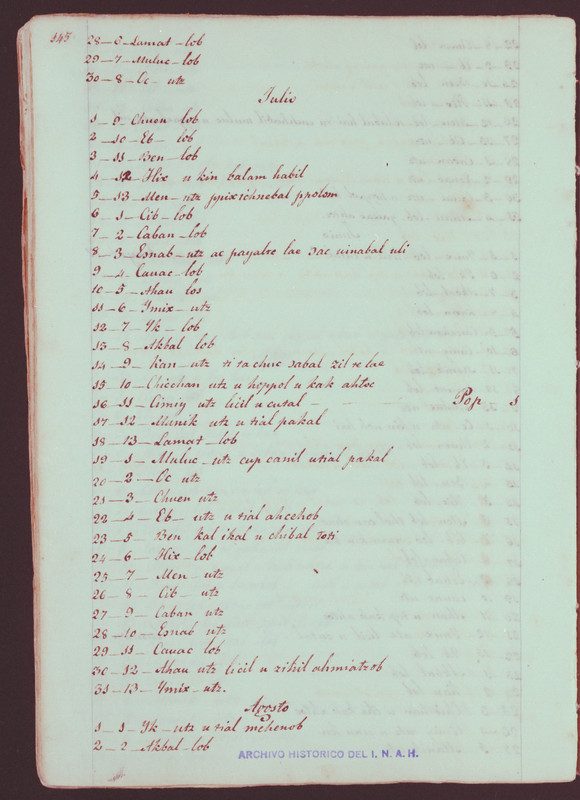 145
28-6-Lamat-lob
29-7-Muluc-lob
30-8-Oc- utz
Julio
1-9-Chuen lob
2-10-Eb- lob
3-11-Ben-lob
4-12-Hix u kin balam habil
5-13-Men-utz ppixichnebal ppolom
6 1-Cib-lob
7-2-Caban-lob
8-3-Esnab-utz ac payalte lae sac uinabal uli
9-4-Cauac lob
10-5-Ahau los
11-6-Ymix-utz
12-7-Yk-lob
13-8-Akbal lob
14-9-Kan-utz
15-10-Chicchan utz u hoppol u kak ahtoc
16-11-Cimiy utz licil u cutal - Pop 1
17-12-Manik utz u tial pakal
18-13-Lamat-lob
19-1-Muluc-utz cup canil utial pakal
20-2-Oc utz
21-3-Chuen utz
22-4-Eb-utz u tial ahcehob
23-5 Ben kal ikal u chibal toti
24-6-Hix-lob
25-7-Men-utz
26-8-Cib-utz
27-9-Caban utz
28-10-Esnab utz
29-11-Cauac lob
30-12-Ahau utz licil u zihil ahmiatzob
31-13-Ymix-utz.
Agosto
1-1-Yk-utz u tial mehenob
2-2-Akbal-lob
ARCHIVO HISTORICO DEL I. N. A. H.